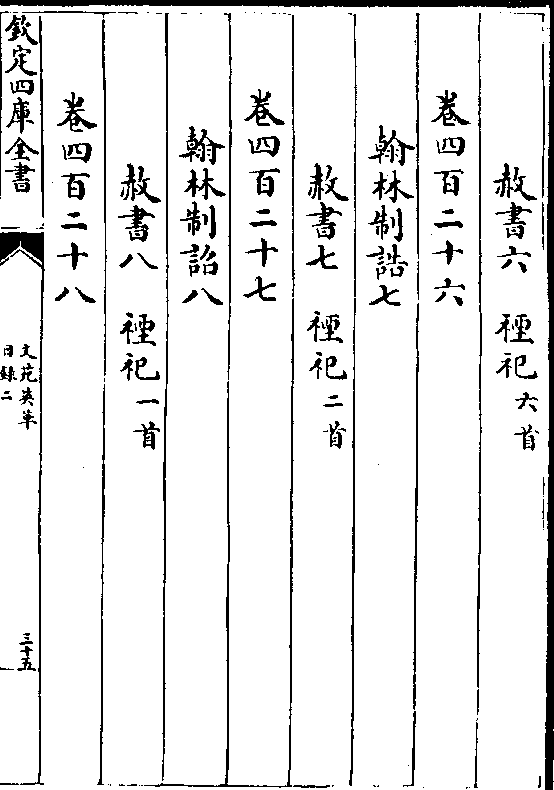 赦書六　禋祀六首
卷四百二十六
翰林制誥七
赦書七　禋祀二首
卷四百二十七
翰林制詔八
赦書八　禋祀一首
卷四百二十八
欽定四庫全書
文苑英華
目錄二
三十五